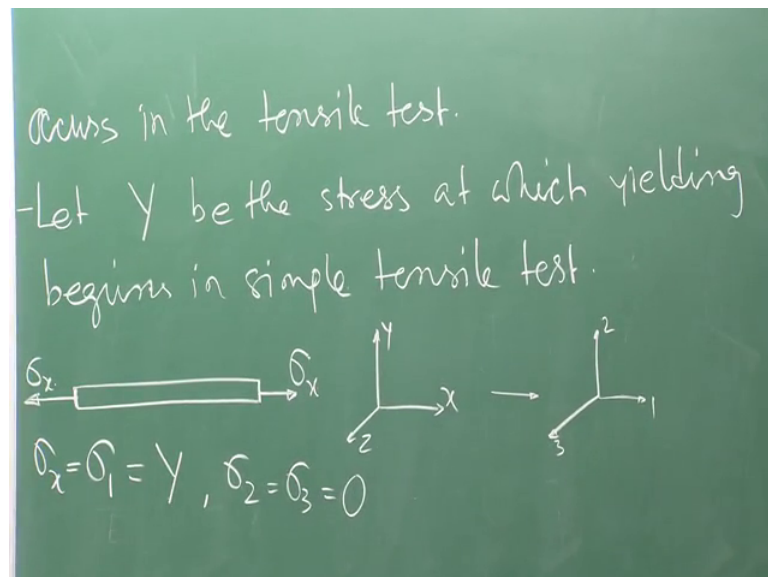 occurs in the tensile test.
-Let Y be the stress at which yielding
begins in simple tensile test.
σx σx y x z 2 1 3
σx=σ1=Y, σ2=σ3=0